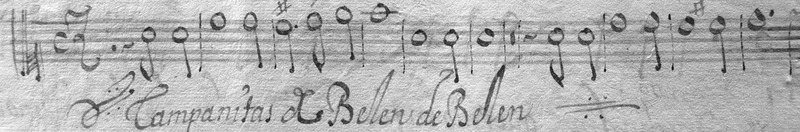 Campanitas de Belen de Belen